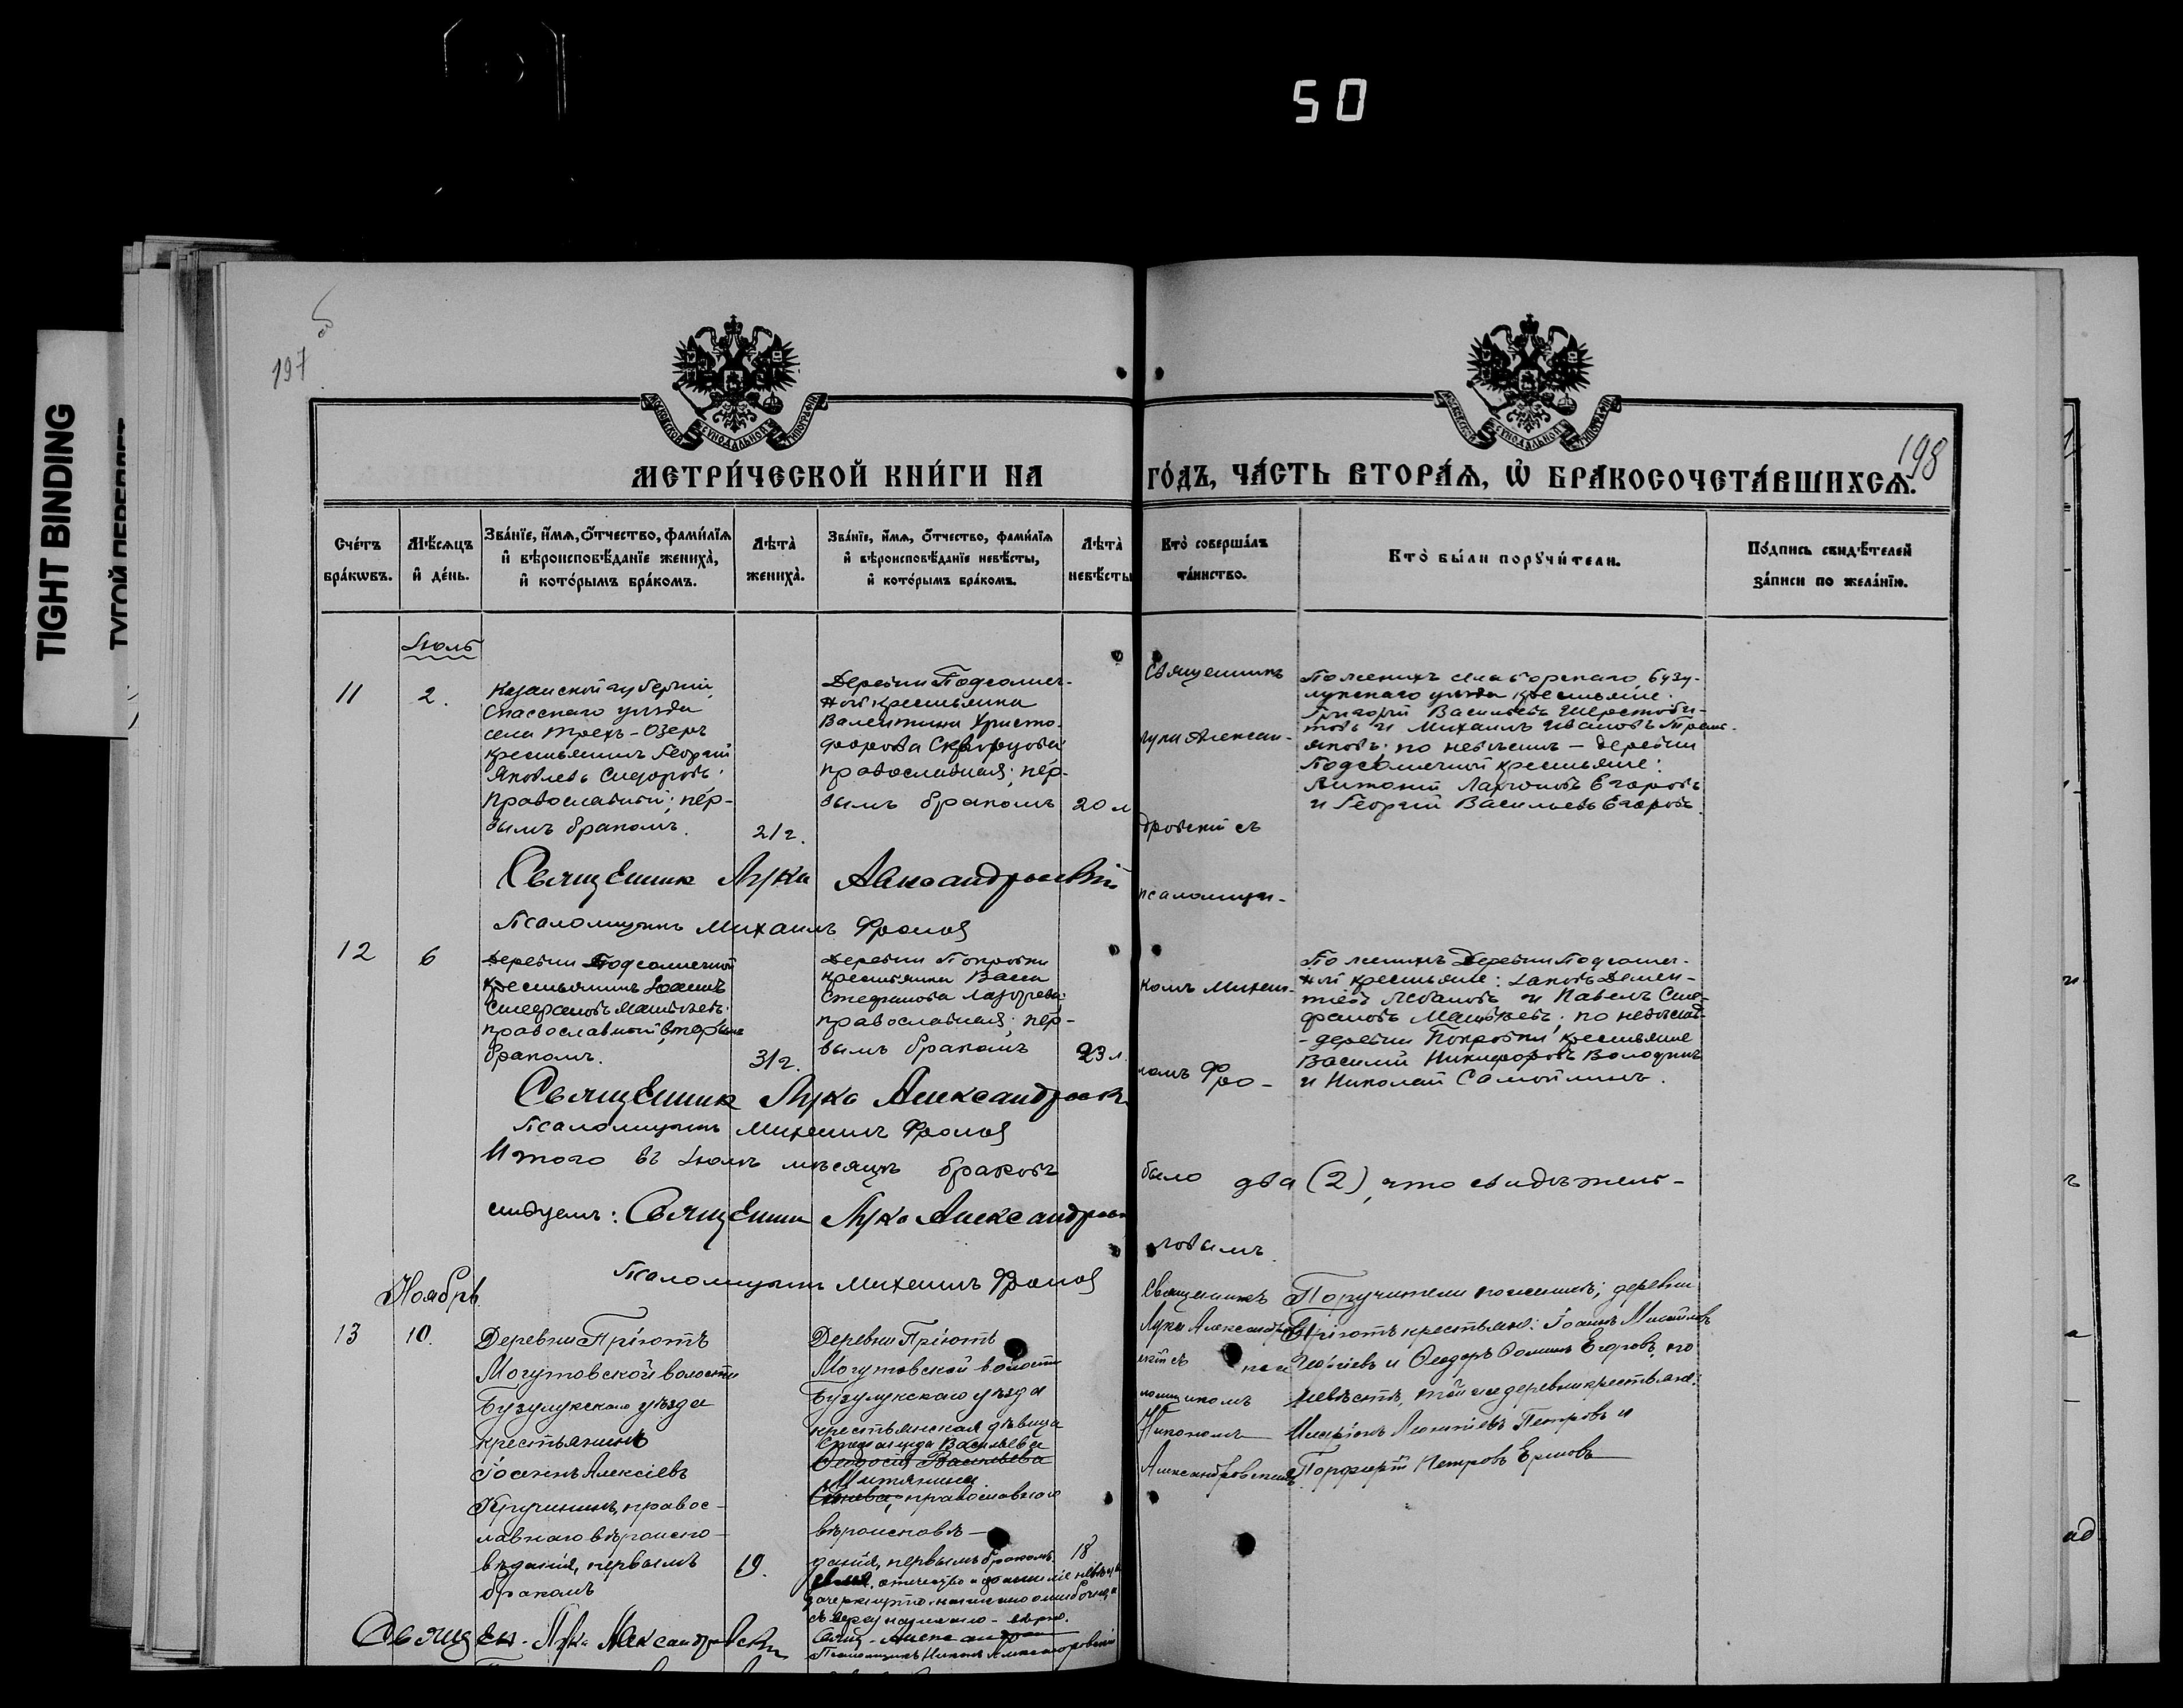 50
TIGHT BINDING
ТУГОЙ ПЕРЕПЛЕТ
197
об
198
МОСКОВСКОЙ СѴНОДАЛЬНОЙ ТИПОГРАФІИ
МОСКОВСКОЙ СѴНОДАЛЬНОЙ ТИПОГРАФІИ
МЕТРИ́ЧЕСКОЙ КНИ́ГИ НА
ГО́ДЪ, ЧА́СТЬ ВТОРА́Ѧ, Ѽ БРАКОСОЧЕТА́ВШИХСѦ.
Сче́тъ
бра́кѡвъ.
Мѣ́сяцъ
и҆ де́нь.
Зва́нїе, и҆́мѧ, о҆́тчество, фами́лїѧ
и҆ вѣроисповѣ́данїе жениха̀,
и҆ кото́рымъ бра́комъ.
Лѣта̀
жениха̀.
Зва́нїе, и҆́мѧ, о҆́тчество, фами́лїѧ
и҆ вѣроисповѣ́данїе невѣ́сты,
и҆ кото́рымъ бра́комъ.
Лѣта̀
невѣ́сты
Кто̀ соверша́лъ
та́инство.
Кто̀ бы́ли порꙋчи́тели.
По́дпись свидѣ́телей
за́писи по жела́нїю.
Іюль
11
2.
Казанской губерніи
Спасскаго уѣзда
села Трехъ-Озеръ
крестьянинъ Георгій
Яковлевъ Сидоровъ;
православный; пер-
вымъ бракомъ.
21 г.
Деревни Подсолнеч-
ной крестьянка
Валентина Христо-
форова Скворцова
православная; пер-
вымъ бракомъ
20 л
Священникъ
Лука Алексан-
дровскій съ
псаломщи-
комъ Михаи-
ломъ Фро-
ловымъ.
По женихѣ села Борскаго Бузу-
лукскаго уѣзда крестьяне:
Григорій Васильевъ Шерстоби-
товъ и Михаилъ Ивановъ
по невѣстѣ – деревни
Подсолнечной крестьяне:
Антоній Ларіоновъ Егоровъ
и Георгій Васильевъ Егоровъ.
Священникъ Лука Александровскій
Псаломщикъ Михаилъ Фролов
12
6
Деревни Подсолнечной
крестьянинъ Іоаннъ
Стефановъ Матвѣевъ;
православный; вторымъ
бракомъ.
31 г.
Деревни Покровки
крестьянка Васса
Стефанова Лазарева;
православная; пер-
вымъ бракомъ
23 л.
По женихѣ деревни Подсолнеч-
ной крестьяне: Іаковъ Демен-
тіевъ и Павелъ Сте-
фановъ Матвѣевъ; по невѣстѣ
- деревни Покровки крестьяне
Василій Никифоровъ Володинъ
и Николай Самойлинъ.
Священникъ Лука Александровск
Псаломщикъ Михаилъ Фролов
Итого въ Іюлѣ мѣсяцѣ браковъ
было два (2), что свидѣтель-
ствуемъ: Священник Лука Александровск
Псаломщикъ Михаилъ Фролов
Ноябрь
13
10.
Деревни Пріютъ
Могутовской волости
Бузулукскаго уѣзда
крестьянинъ
Іоаннъ Алексіевъ
Кручининъ, правос-
лавнаго вѣроиспо-
вѣданія, первымъ
бракомъ
19.
Деревни Пріютъ
Могутовской волости
Бузулукскаго уѣзда
крестьянская дѣвица
Васильева
Ѳеодосія Васильева
Митянина
православнаго
вѣроисповѣ-
данія, первымъ бракомъ.
18
имя, отчество и фамиліе невѣсты
зачеркнуто написано ошибочно, а
съ верху написано – вѣрно.
Свящ. Александров
Псаломщикъ Никонъ Александровскій
Священникъ
Лука Александров-
скій съ псал
ломщикомъ
Никономъ
Александровскимъ
Поручители по женихѣ; деревни
Пріютъ крестьяне: Іоаннъ Михайловъ
Георгіевъ и Ѳеодоръ Ѳоминъ Егоровъ, по
невѣстѣ, той же деревни крестьяне:
Иларіонъ Леонтіевъ Петровъ и
Порфирій Петровъ Ершовъ
Свящ ен. Лука Александровски